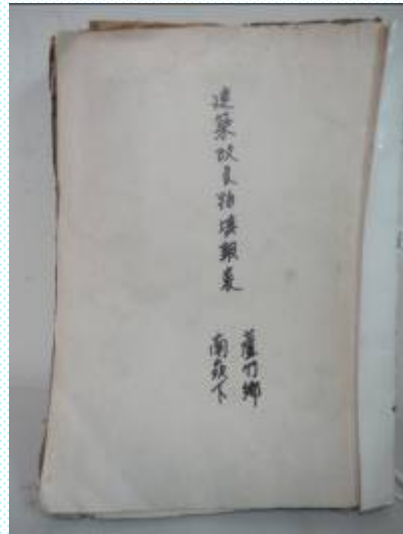 建築改良物填報表
蘆竹鄉
南崁下